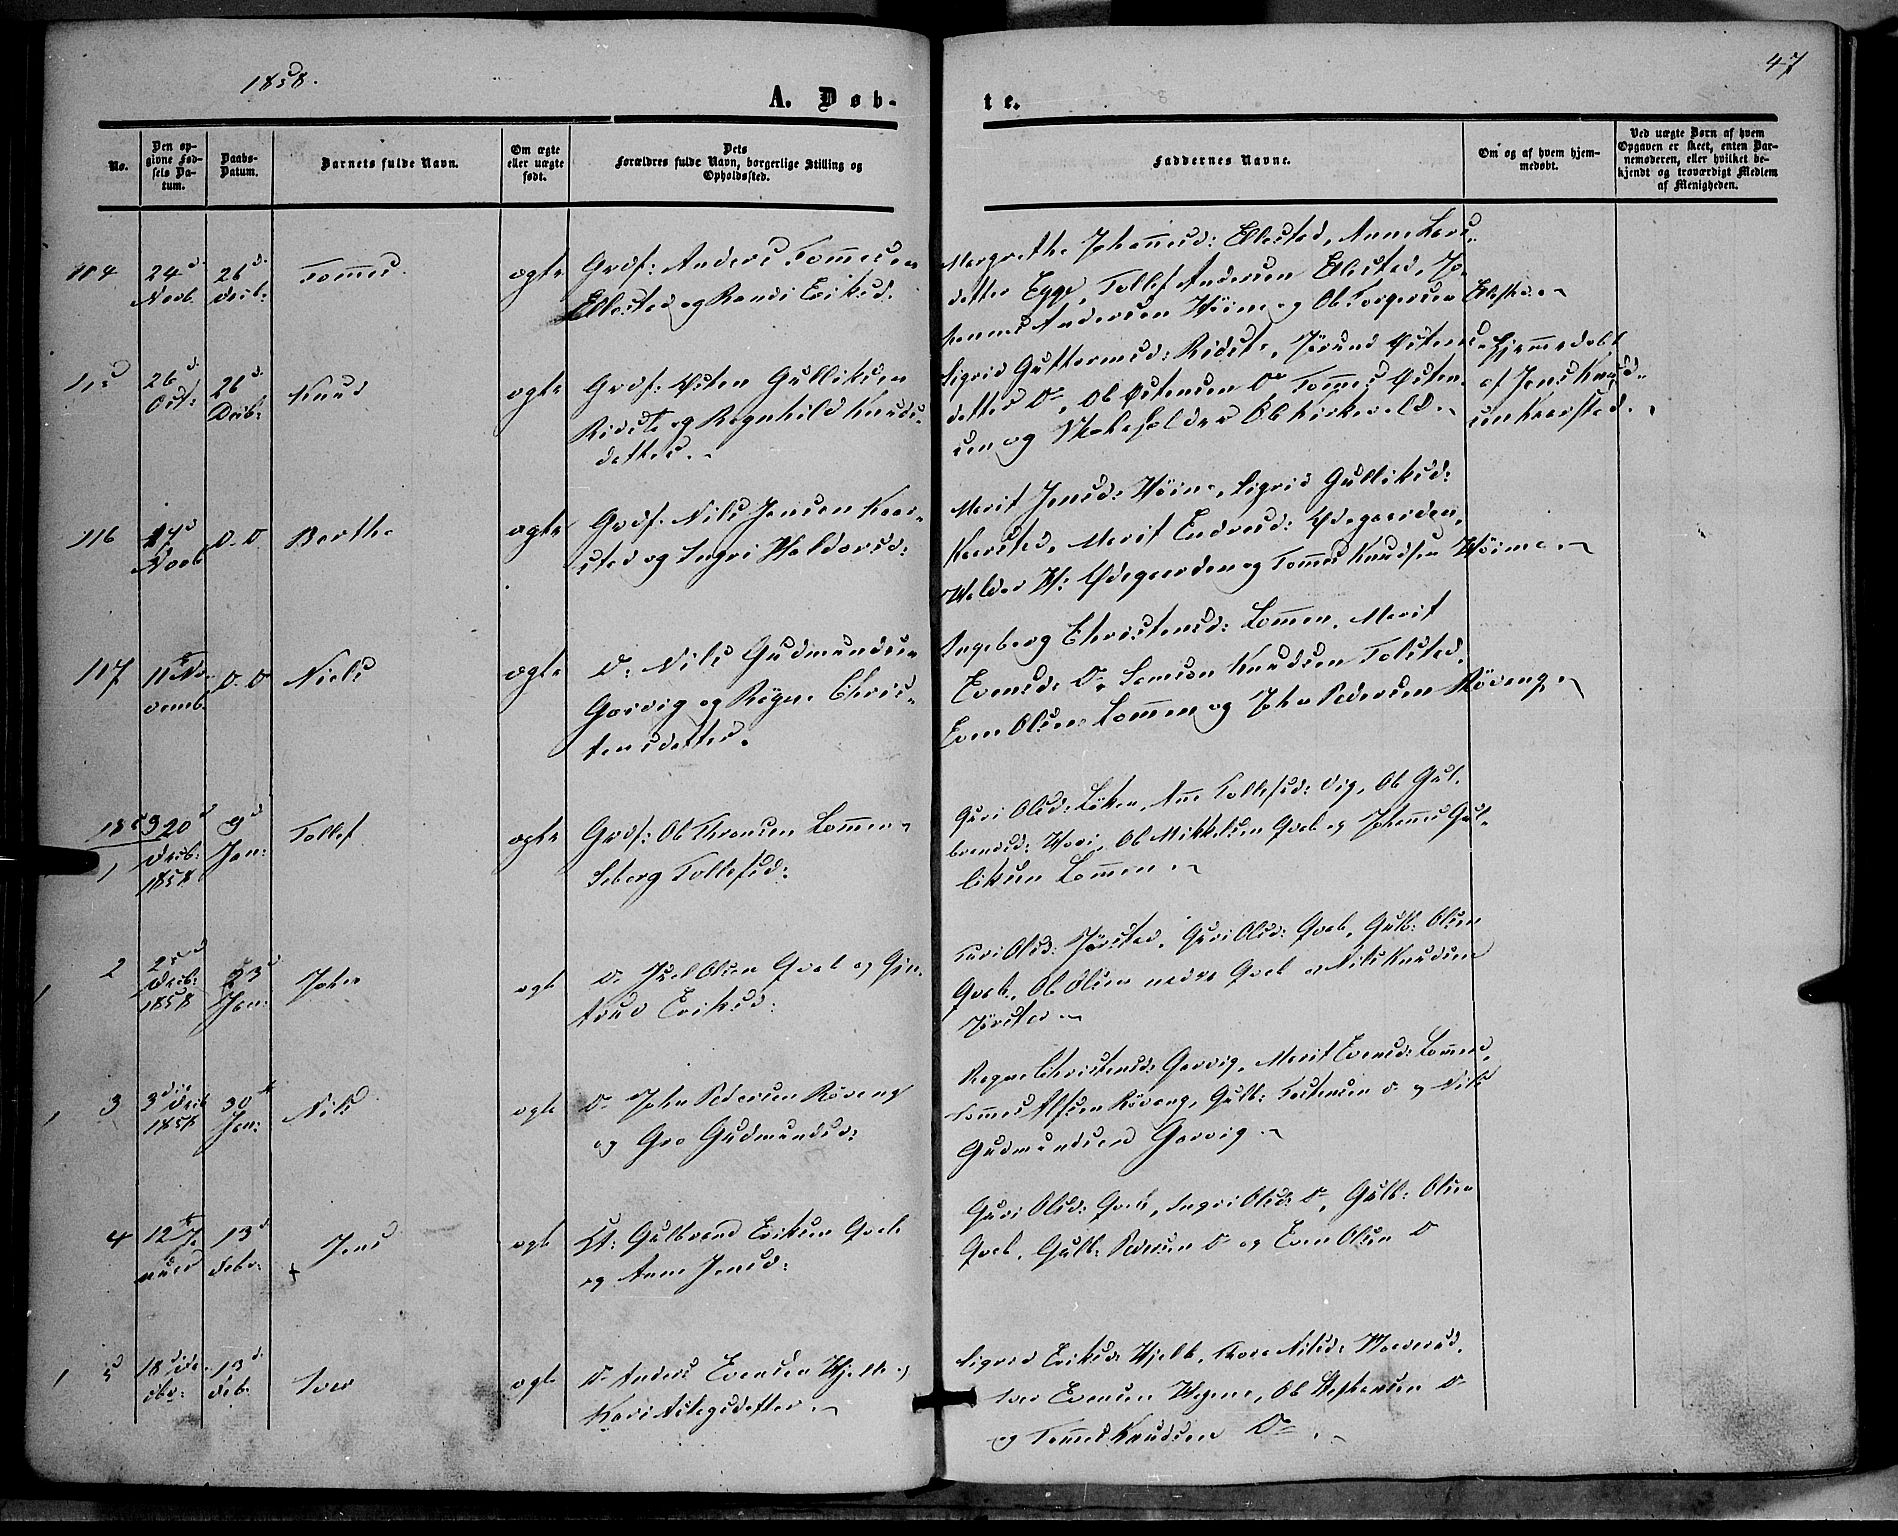 1858.
47
A. Døb-
te.
No.
Den op-
givne Fød-
sels Da-
tum.
Daabs-
Datum.
Barnets fulde Navn.
Om ægte
eller uægte
født.
Dets
Forældres fulde Navn, borgerlige Stilling og
Opholdssted.
Faddernes Navne.
Om og af hvem hjem-
medøbt.
Ved uægte Børn af hvem
Opgaven er skeet, enten Bar-
nemoderen, eller hvilket be-
kjendt og troværdigt Medlem
af Menigheden.
24d
Novb.
26d
Decb:
Tommes
ægte
Grdf: Anders Tommesen
Ellestad og Randi Eriksd.
Margrethe Johannesd: Ellestad, Anne Lars-
datter Egge, Tollef Andersen Ellestad, Jo-
hannes Andersen Høime og Ole Torgersen Ellestad.
115
26d
Oct:
26d
Decb:
Knud
ægte
Grdf: Østen Gulliksen
Ridste og Ragnhild Knuds-
datter.
Sigrid Guttormsd: Ridste, Jørund Østens-
datter Do, Ole Østensen Do Tommes Østen-
sen og Ole Kirkevold.
Hjemmedøbt
af Jens Knud-
sen Kaarstad.
116
17d
Novb
D. D
Berthe
ægte
Grdf: Nils Jensen Kaar-
stad og Ingri Haldorsd:
Marit Jensd: Høime, Sigrid Gulliksd:
Kaarstad, Marit Endresd: Ødegaarden,
Haldor H: Ødegaarden og Tommes Knudsen Høime.
117
11te No-
vemb.
D. D
Niels
ægte
Do Nils Gudmundsen
Garvig og Ragne Chris-
tensdatter.
Ingeborg Christensd: Lommen, Marit
Evensd: Do, Samson Knudsen Tolstad,
Even Olsen Lommen og John Pedersen Røvang.
1859
1
20d
Decb:
1858
9d
Jan:
Tollef
ægte
Grdf: Ole Thronsen Lommen
Siborg Tollefsd:
Guri Olsd: Løken, Anne Tollefsd: Vig, Ole Gul-
brandsd: Hovi, Ole Mikkelsen Qvale og Johannes Gul-
liksen Lommen.
2
25d
Decb:
1858
23d
Jan:
John
ægte
Do Juel Olsen Qvale og Gjer-
trud Eriksd:
Kari Olsd: Jørstad, Guri Olsd: Qvale, Gulb: Olsen
Qvale, Ole Olsen nedre Qvale og Nils Knudsen
Jørstad.
3
3die Decb
1858
30te
Jan:
Nils
ægte
Do John Pedersen Røvang
og Gro Gudmundsd:
Ragne Christensd: Garvig, Marit Evensd: Lommen,
Tommes Alfsen Røvang, Gulb: Torstensen Do og Nils
Gudmundsen Garvig.
4
12te Ja-
nuar
13d
Febr:
Jens
ægte
Gulbrand Eriksen Qvale
og Anne Jensd:
Guri Olsd: Qvale, Ingri Olsd: Do, Gulb: Olsen
Qvale, Gulb: Pedersen Do og Even Olsen Do
5
13d
Feb:
Iver
ægte
Do Anders Evensen Hjelle og
Kari Aslagsdatter.
Sigrid Eriksd: Hjelle, Thore Nilsd:
Iver Evensen, Ole Stephensen Do
og Tommes Knudsen Do